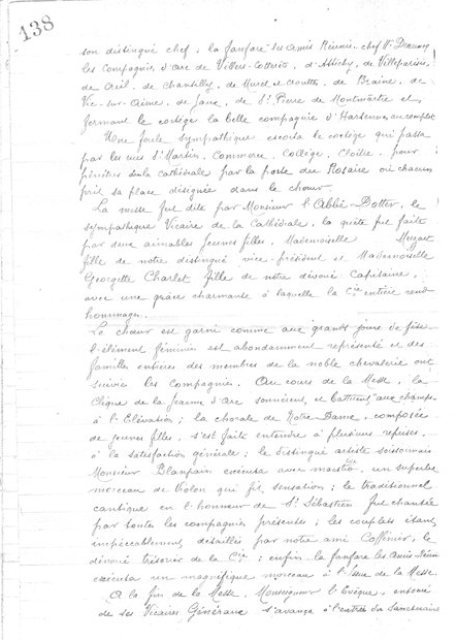 138
son distingué chef ; la fanfare les Amis Réunis, chef Mr
les Compagnies d'arc de Villers-Cotterêts, d'Attichy, de Villeparisis,
de Creil, de Chantilly, de Muret et Crouttes, de Braine, de
Vic-sur-Aisne, de Jane, de St Pierre de Montmartre et,
fermant le cortège la belle compagnie d'Hartennes au complet
Une foule sympathique escorta le cortège qui passa
par les rues St Martin, Commerce, Collège, Cloître, pour
pénétrer dans la cathédrale par la porte du Rosaire où chacun
prit sa place désignée dans le chœur.
La messe fut dite par Monsieur l'Abbé Dotter, le
sympathique Vicaire de la Cathédrale, la quête fut faite
par deux aimables jeunes filles, Mademoiselle
fille de notre distingué vice-président et Mademoiselle
Georgette Charlet fille de notre dévoué Capitaine,
avec une grâce charmante à laquelle la Cie entière rend
hommage.
Le chœur est garni comme aux grands jours de fête
l'élément féminin est abondamment représenté et des
familles entières des membres de la noble chevalerie ont
suivi les Compagnies. Au cours de la Messe, la
Clique de la Jeanne d'Arc sonnèrent et battirent aux champs
à l'Elévation ; la chorale de Notre-Dame, composée
de jeunes filles, s'est faite entendre à plusieurs reprises,
à la satisfaction générale ; le distingué artiste soissonnais
Monsieur Blanpain exécuta avec maestria, un superbe
morceau de violon qui fit sensation ; le traditionnel
cantique en l'honneur de St Sébastien fut chantée
par toutes les compagnies présentes ; les couplets étant
impeccablement détaillés par notre ami Caffinier, le
dévoué trésorier de la Cie ; enfin la fanfare les Amis Réunis
exécuta un magnifique morceau à l'Issue de la Messe.
A la fin de la Messe, Monseigneur l'Evêque, entouré
de ses Vicaires Généraux s'avança à l'entrée du Sanctuaire